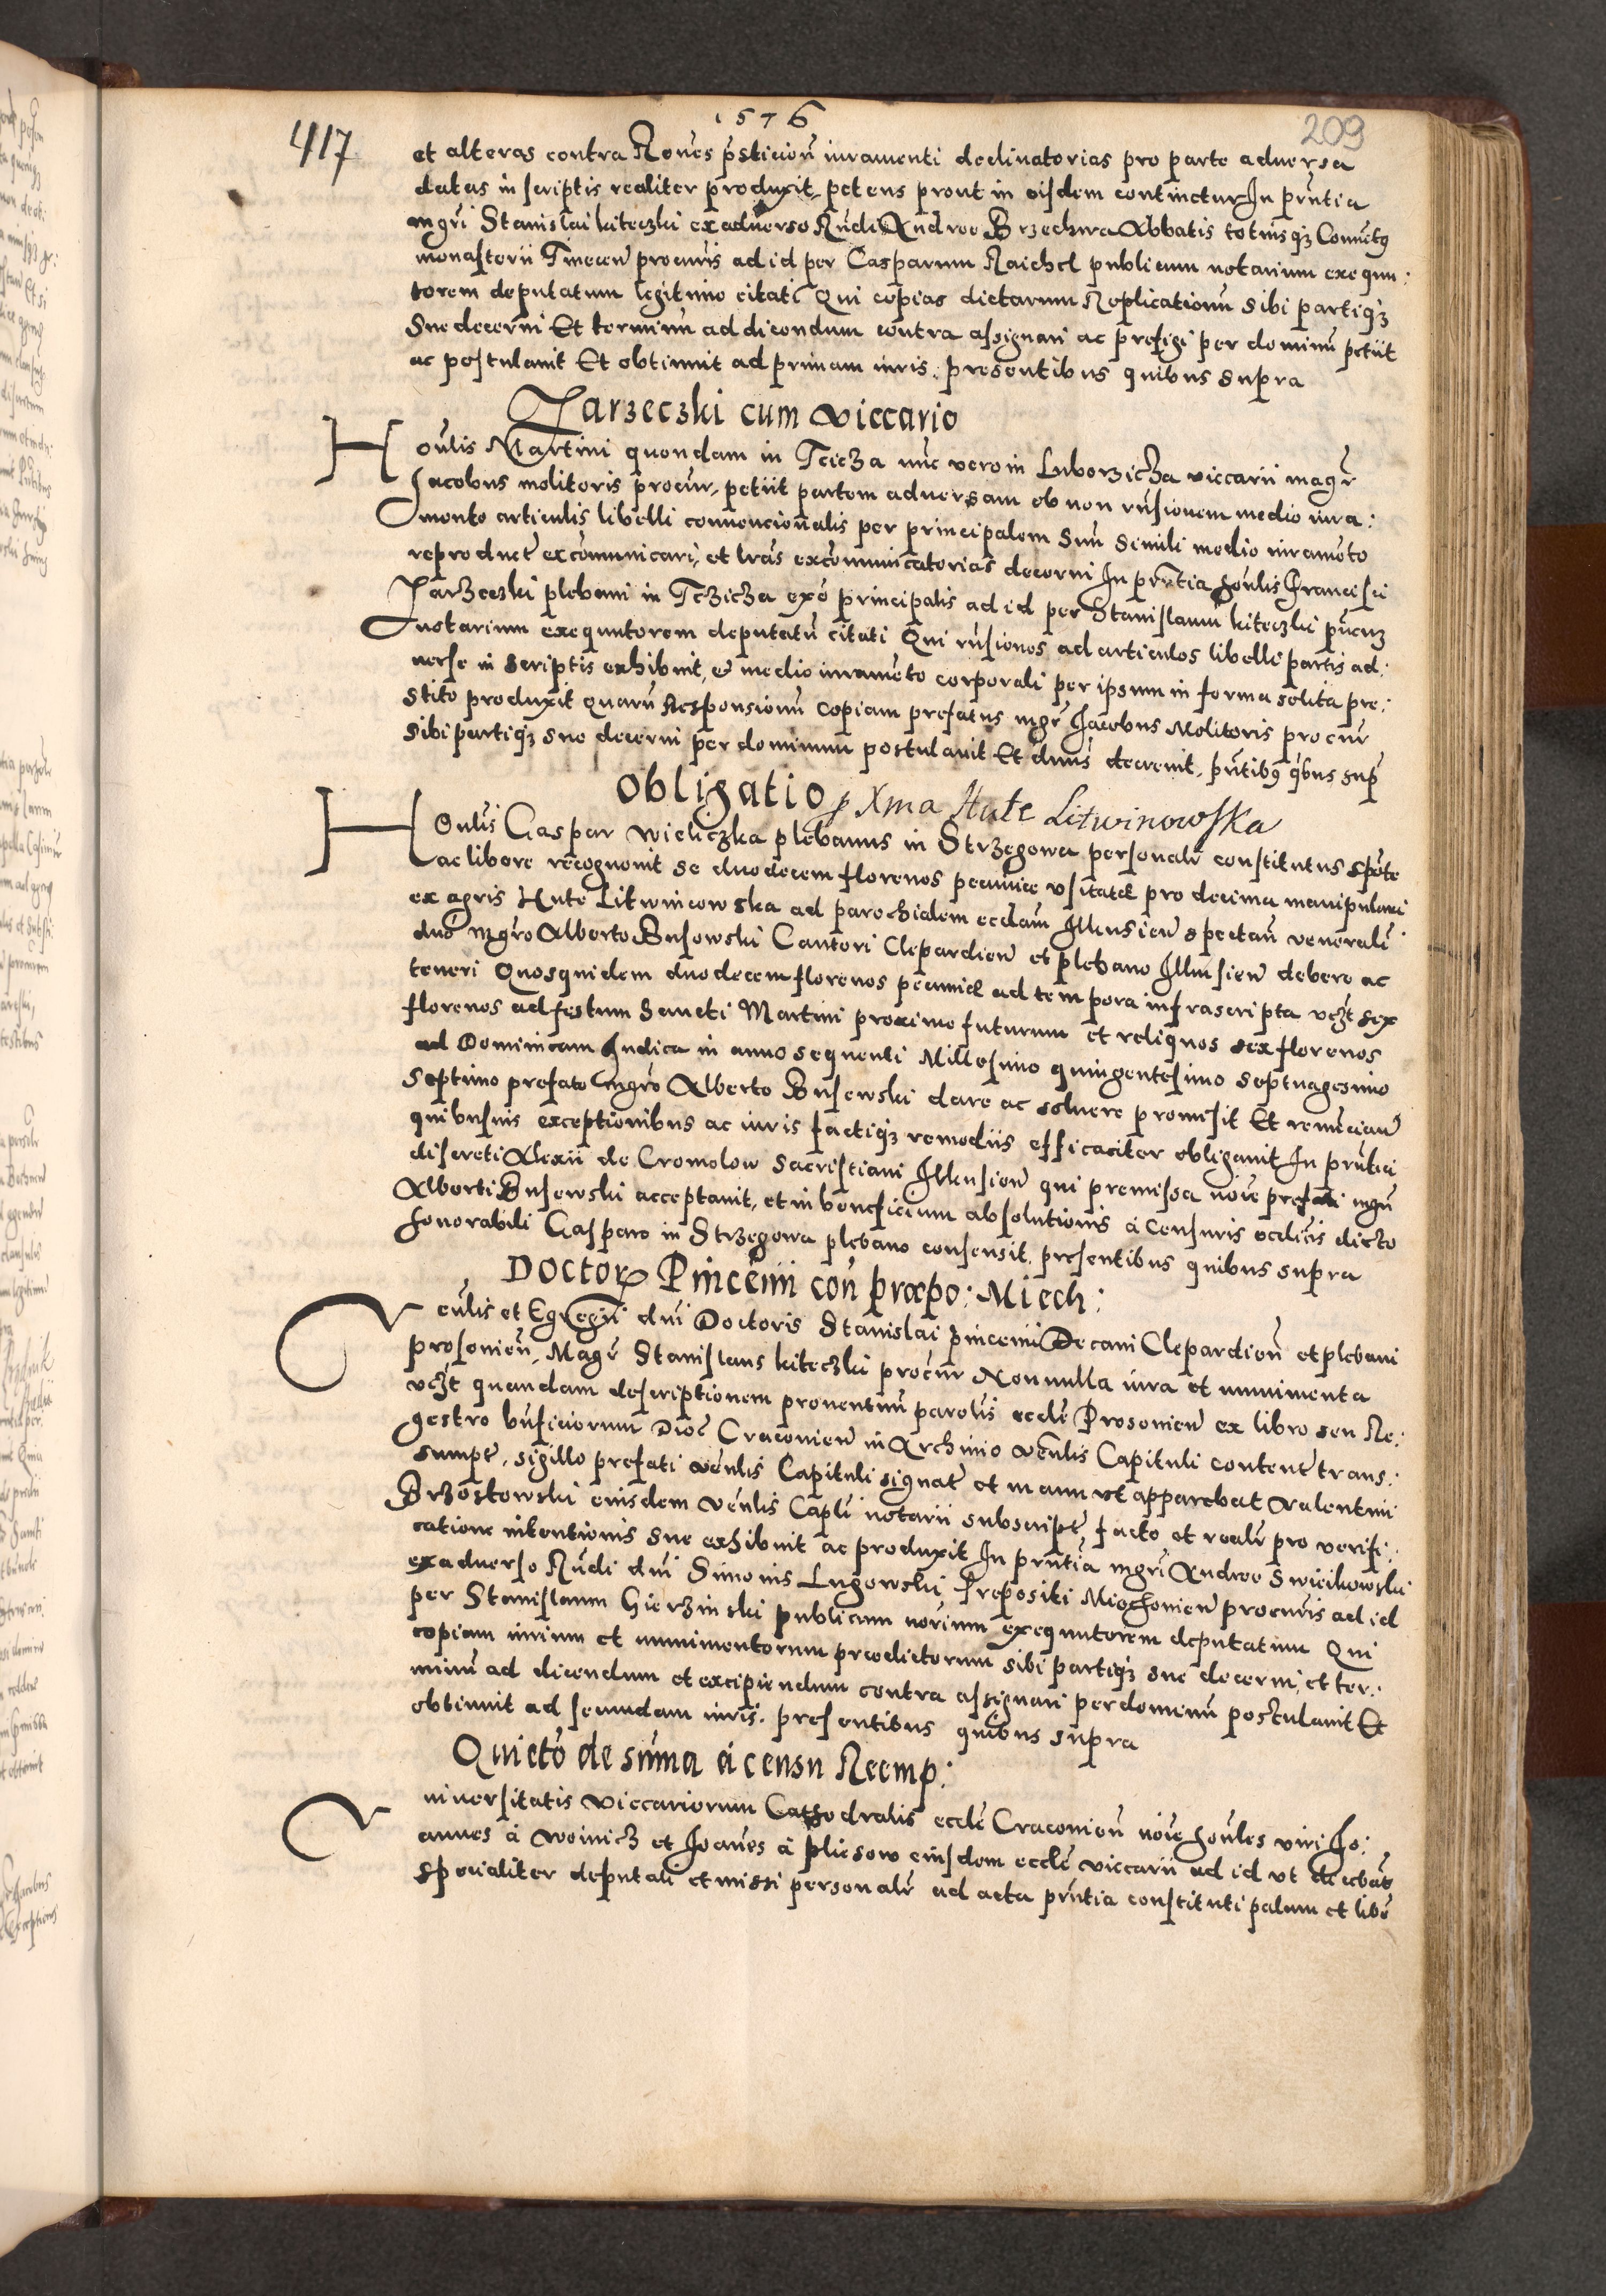 1576
417
209
et alteras contra Rones pͤsticioñ iuramenti declinatorias pro parte aduersa
datas in scriptis realiter produxit petens prout in eisdem continetur In pñtia
mgri Stanislai kiteczki ex aduerso Rñdi Andree Brzechwa Abbatis totiusqȝ Conuētꝯ
monasterii Tinecen̄ procuris ad id per Casparum Raichel publicum notarium exequu:
torem deputatum legitime citati Qui copias dictarum Replicationū sibi partiqȝ
Sue decerni Et terminū ad dicendum contra assignari ac prefigi per dominū petiit
ac postulauit Et obtinuit ad primam iuris. presentibus quibus supra
Jarzeczki cum viccario
Hoñlis Martini quondam in Tcicza nūc vero in Luborzicza viccarii magr̃
Jacobus molitoris procur̃, petiit partem aduersam ob non rñsionem medio iura:
mento articulis libelli conuencionalis per principalem Suū Simili medio iuramēto
reproduct̃ excōmunicari, et lr̃as excommunicatorias decerni In prñtia hoñlis Francisci
Jarzeczki plebani in Tczicza exͦ principalis ad id per Stanislaum kiteczki pūcuȝ
notarium exequutorem deputatū citati Qui rñsiones ad articulos libelli partis ad:
uerse in Scriptis exhibuit, & medio iuramēto corporali per ipsum in forma solita pre:
stito produxit quarū Responsionū copiam prefatus mgr̃ Jacobus Molitoris procur̃
Sibi partiqȝ sue decerni per dominum postulauit Et dñus decreuit, pñtibꝯ qͥbus sup̃
Obligatio p Xma Hute Litwinowska
Hoñlis Caspar Wieliczka plebanus in Strzegowa personalr̃ constitutus spōte
ac libere recognouit se duodecem florenos pecuniæ vsitatæ pro decima manipulari
ex agris Hute Litwinowska ad parochialem eccl̃am Jlkusien̄ spectañ venerali
dño mgrͦo Alberto Busowski Cantori Clepardien̄ et plebano Jlkusien̄ debere ac
teneri Quosquidem duodecem florenos pecuniæ ad tempora infrascripta vczt sex
florenos ad festum Sancti Martini proximo futurum et reliquos sex florenos
ad Dominicam Judica in anno sequenti Millesimo quingentesimo septuagesimo
Septimo prefato mgrͦo Alberto Busewski dare ac soluere promisit Et renuncian̄
quibusuis exceptionibus ac iuris factiqȝ remediis efficaciter obligauit In prñtia
discreti Alexii de Cromolow Sacristiani Jlkusien̄ qui premissa noīe prefati mgri
Alberti Busewski acceptauit, et in beneficium absolutionis à Censuris eccl̃icis dicto
honorabili Casparo in Strzegowa plebano consensit. presentibus quibus supra
Doctor Pincēnii con̄ præpo: Miech:
Veñlis et Egregii dñi Doctoris Stanislai pincenii Decani Clepardien̄ et plebani
prosonien̄, Magr̃ Stanislaus kiteczki procur̃ Nonnulla iura et munimenta
vczt quandam descriptionem prouentuū parolis̃ eccl̃e Prosonien̄ ex libro seu Re:
gestro bn̄ficiorum Dioc̃ Cracouien̄ in Archiuio veñlis Capituli content̃ trans:
sumpt̃, sigillo prefati veñlis Capituli signat̃ et manu vt apparebat valentini
Brzostowski eiusdem veñlis Capl̃i notarii subscript̃, facto et realr̃ pro verifi:
catione intentionis sue exhibuit ac produxit In prñtia mgri Andree Swiеikowski
ex aduerso Rñdi dñi Simonis Lugowski Prepositi Miechouien̄ procuris ad id
per Stanislaum Gierzinski publicum norium exequutorem deputatum Qui
copiam iurium et munimentorum prædictorum sibi partiqȝ sue decerni, et ter:
minū ad dicendum et excipiendum contra assignari per dominū postulauit Et
obtinuit ad secundam iuris. presentibus quibus supra
Quietͦ de sūma à censu Reemp:
Vniuersitatis viccariorum Cathedralis eccl̃e Cracouien̄ noīe hoñles viri Jo:
annes à woinicz et Joañes à pliesow eiusdem eccl̃e viccarii ad id vt dicebāt
specialiter deputati et missi personalr̃ ad acta prñtia constituti palam et liber̃